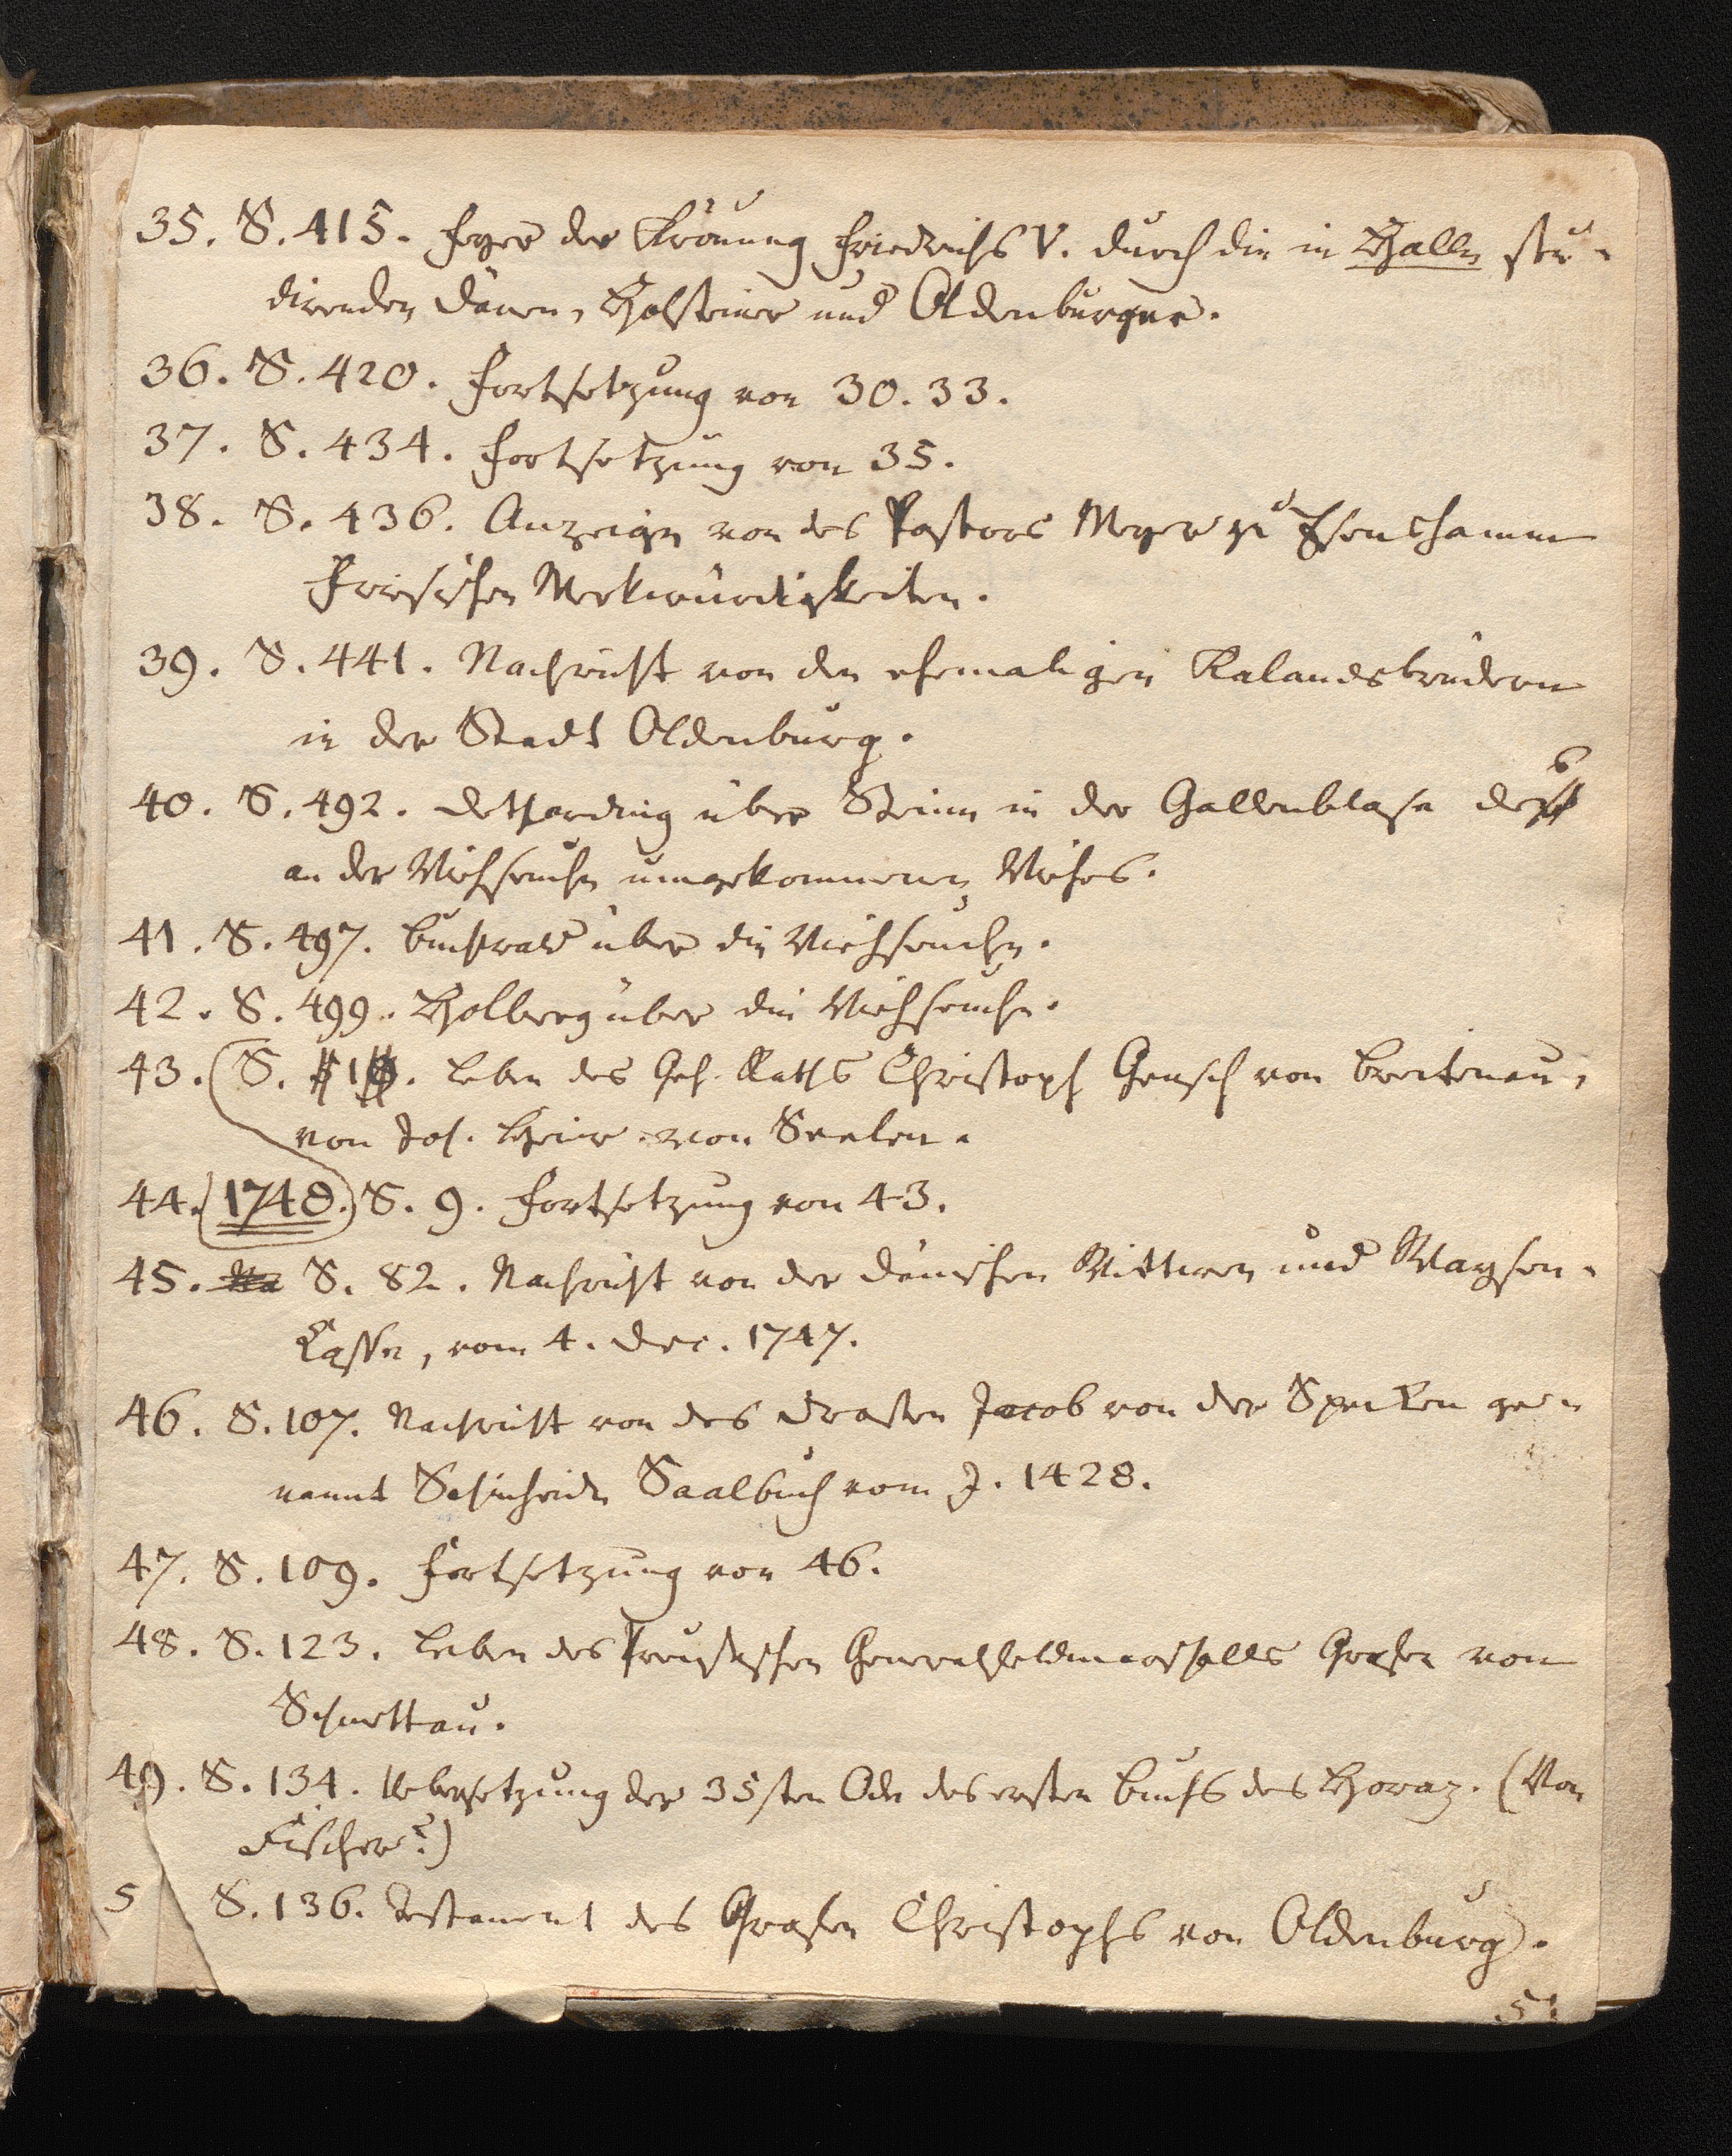 35. S. 415. Feyer der Krönung Friedrichs V. durch die in Halle stu-
direnden Dänen, Holsteiner und Oldenburger.
36. S. 420. Fortsetzung von 30. 33.
37. S. 434. Fortsetzung von 35.
38. S. 436. Anzeige von des Pastors Meyer zu Esenshamm
Friesischen Merkwürdigkeiten.
39. S. 441. Nachricht von den ehemaligen Kalandsbrüdern
in der Stadt Oldenburg.
40. S. 492. Detharding über Steine in der Gallenblase des
an der Viehseuche umgekommenen Viehes.
41. S. 497. Buchwald über die Viehseuche.
42. S. 499. Holberg über die Viehseuche.
43. S. 1. Leben des Geh. Raths Christoph Gensch von Breitenau,
von Joh. Heinr. von Seelen.
44. (1748.) S. 9. Fortsetzung von 43.
45. S. 82. Nachricht von der dänischen Wittwen und Waysen-
Casse, vom 4. Dec. 1747.
46. S. 107. Nachricht von des Drosten Jacob von der Specken ge-
nannt Schinheide Saalbuch vom J. 1428.
47. S. 109. Fortsetzung von 46.
48. S. 123. Leben des Preusischen Generalfeldmarschalls Grafen von
Schmettau.
49. S. 134. Uebersetzung der 35sten Ode des ersten Buchs des Horaz. (Von
Fischer?)
5 S. 136. Testament des Grafen Christophs von Oldenburg.